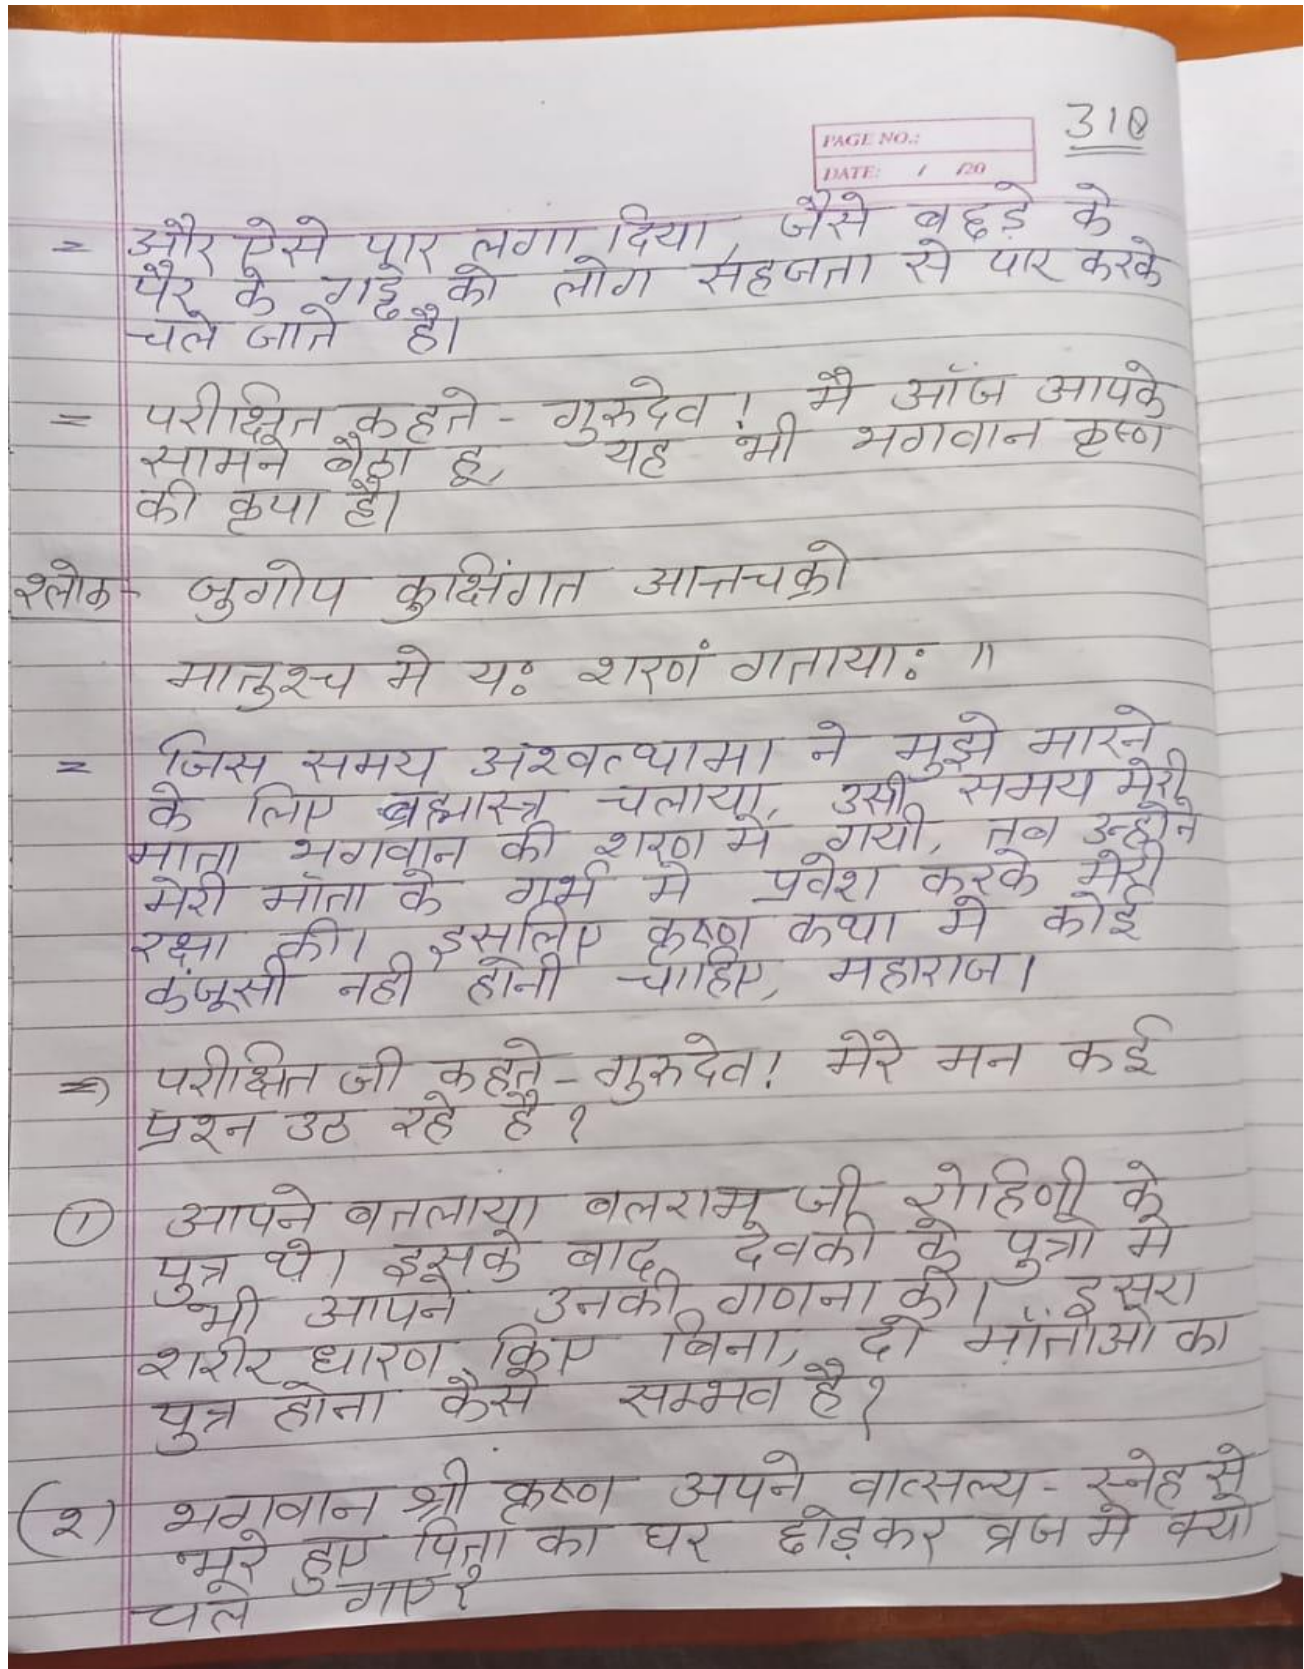 310
PAGE NO.:
DATE: / /20
= और ऐसे पार लगा दिया, जैसे बछड़े के
पैर के गड्ढे को लोग सहजता से पार करके
चले जाते है।
= परीक्षित कहते - गुरुदेव! मै ऑज आपके
सामने बैठा हू, यह भी भगवान कृष्ण
की कृपा है।
श्लोक - जुगोप कुक्षिंगत आत्तचक्रो
मातुश्च मे यः शरणं गतायाः ॥
= जिस समय अश्वत्थामा ने मुझे मारने
के लिए ब्रह्मास्त्र चलाया, उसी समय मेरी
माता भगवान की शरण मे गयी, तब उन्होने
मेरी मॉता के गर्भ मे प्रवेश करके मेरी
रक्षा की। इसलिए कृष्ण कथा मे कोई
कंजूसी नही होनी चाहिए, महाराज।
=) परीक्षित जी कहते - गुरुदेव! मेरे मन कई
प्रश्न उठ रहे है ?
① आपने बतलाया बलराम जी रोहिणी के
पुत्र थे। इसके बाद देवकी के पुत्रो मे
भी आपने उनकी गणना की। दूसरा
शरीर धारण किए बिना, दो मॉताओ का
पुत्र होना कैसे सम्भव है ?
(२) भगवान श्री कृष्ण अपने वात्सल्य - स्नेह से
भरे हुए पिता का घर छोड़कर व्रज मे क्यो
चले गए ?